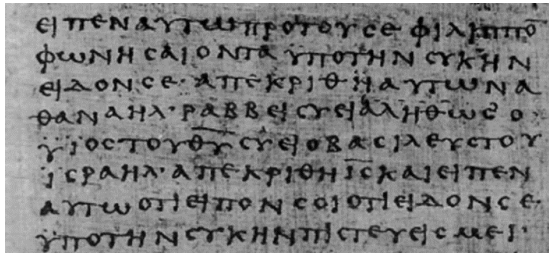 ΕΙΠΕΝΑΥΤΩΠΡΟΤΟΥϹΕΦΙΛΙΠΠΟ̅
ΦΩΝΗϹΑΙΟΝΤΑΫΠΟΤΗΝϹΥΚΗΝ
ΕΙΔΟΝϹΕ·ΑΠΕΚΡΙΘΗΑΥΤΩΝΑ
ΘΑΝΑΗΛ·ΡΑΒΒΕΙϹΥΕΙΑΛΗΘΩϹΟ·
ΫΙΟϹΤΟΥΘ̅Υ̅ϹΥΕΙΟΒΑϹΙΛΕΥϹΤΟΥ
ΪϹΡΑΗΛ·ΑΠΕΚΡΙΘΗΙ̅Ϲ̅ΚΑΙΕΙΠΕΝ
ΑΥΤΩΟΤΙΕΙΠΟΝϹΟΙΟΤΙΕΙΔΟΝϹΕ·
ΫΠΟΤΗΝϹΥΚΗΝΠΙϹΤΕΥΕΙϹΜΕΙ·